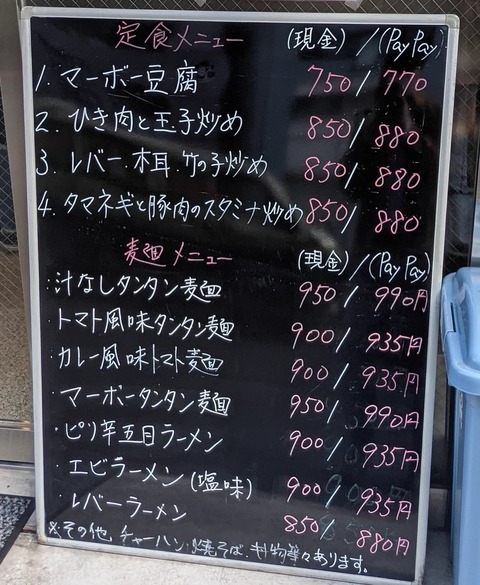 定食メニュー (現金)/(PayPay)
1. マーボー豆腐 750/770
2. ひき肉と玉子炒め 850/880
3. レバー.木耳.竹の子炒め 850/880
4. タマネギと豚肉のスタミナ炒め 850/880
麺メニュー (現金)/(PayPay)
・汁なしタンタン麺 950/990円
・トマト風味タンタン麺 900/935円
・カレー風味トマト麺 900/935円
・マーボータンタン麺 950/990円
・ピリ辛五目ラーメン 900/935円
・エビラーメン(塩味) 900/935円
・レバーラーメン 850/880円
※その他、チャーハン、焼そば、料物等々あります。